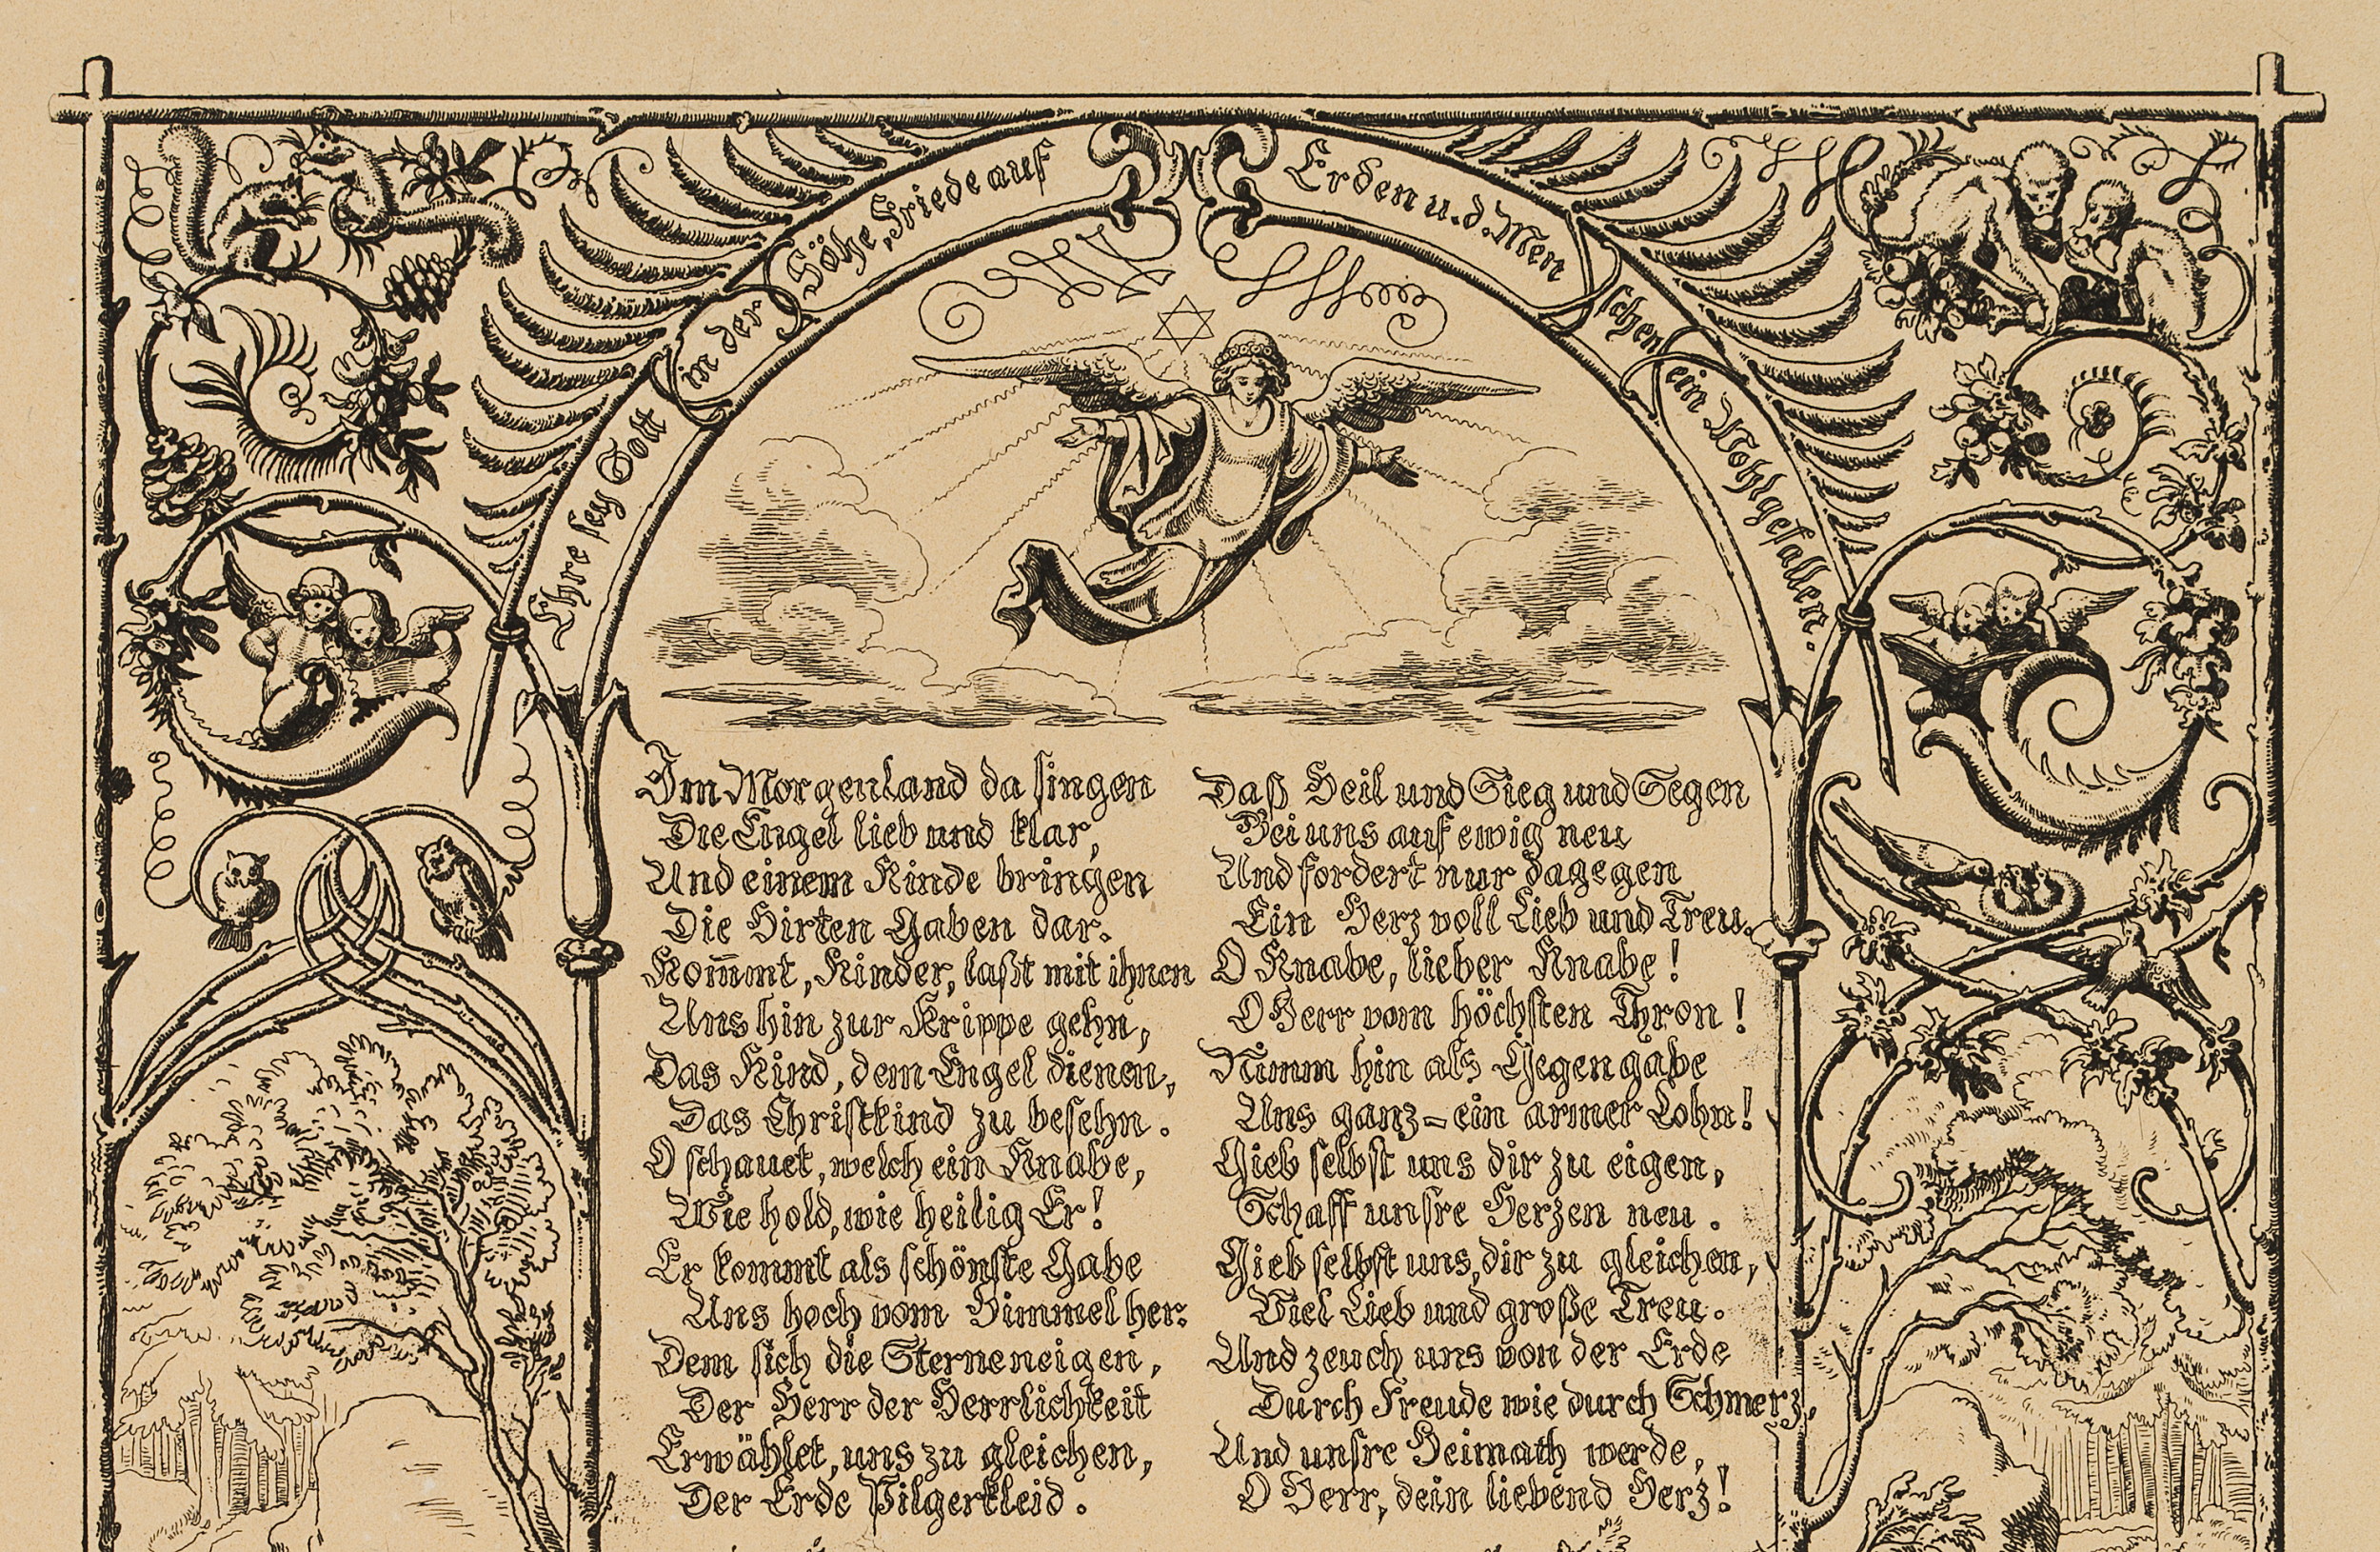 Ehre sey Gott in der Höhe, Friede auf Erden u. d. Menschen ein Wohlgefallen.
Im Morgenland da singen
Die Engel lieb und klar,
Und einem Kinde bringen
Die Hirten Gaben dar.
Kom̅mt, Kinder, laßt mit ihnen
Uns hin zur Krippe gehn,
Das Kind, dem Engel dienen,
Das Christkind zu besehn.
O schauet, welch ein Knabe,
Wie hold, wie heilig Er!
Er kommt als schönste Gabe
Uns hoch vom Himmel her.
Dem sich die Sterne neigen,
Der Herr der Herrlichkeit
Erwählet, uns zu gleichen,
Der Erde Pilgerkleid.
Daß Heil und Sieg und Segen
Bei uns auf ewig neu
Und fordert nur dagegen
Ein Herz voll Lieb und Treu.
O Knabe, lieber Knabe!
O Herr vom höchsten Thron!
Nimm hin als Gegengabe
Uns ganz – ein armer Lohn!
Gieb selbst uns dir zu eigen,
Schaff unsre Herzen neu.
Gieb selbst uns, dir zu gleichen,
Viel Lieb und große Treu.
Und zeuch uns von der Erde
Durch Freude wie durch Schmerz,
Und unsre Heimath werde,
O Herr, dein liebend Herz!